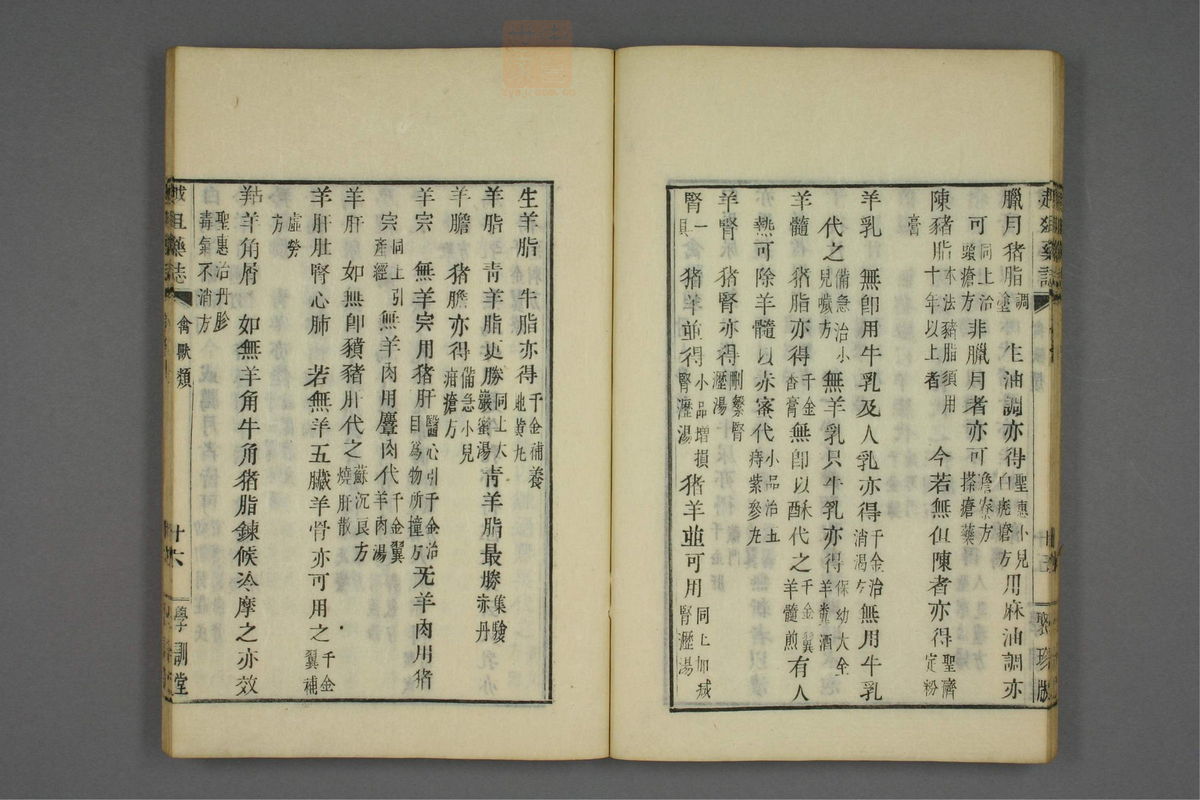 臘月猪脂調塗 生油調亦得聖惠小兒白禿瘡方用麻油調亦
可同上治頭瘡方非臘月者亦可詹泰方搽瘡藥
陳豬脂本法豬脂須用十年以上者 今若無但陳者亦得聖濟定粉
膏
羊乳 無卽用牛乳及人乳亦得千金治消渴方無用牛乳
代之備急治小兒噦方 無羊乳只牛乳亦得保幼大全羊糞酒
羊髓 猪脂亦得千金香膏無卽以酥代之千金翼羊髓煎有人
熱可除羊髓以赤蜜代小品治五痔紫參丸
羊腎 猪腎亦得刪繁腎瀝湯
腎一具 猪羊並得小品增損腎瀝湯 猪羊並可用同上加減腎瀝湯
聚珍版
生羊脂 牛脂亦得千金補養地黃丸
羊脂 靑羊脂更勝同上大巖蜜湯靑羊脂最勝集驗赤丹
羊膽 猪膽亦得備急小兒疳瘡方
羊宍 無羊宍用猪肝醫心引千金治目爲物所撞方无羊肉用猪
宍同上引產經 無羊肉用麞肉代千金翼羊肉湯
羊肝 如無卽獖猪肝代之蘇沉良方燒肝散
羊肝肚腎心肺 若無羊五臟羊骨亦可用之千金翼補
虛勞方
羖羊角屑 如無羊角牛角猪脂鍊候冷摩之亦效
聖惠治丹胗毒氣不消方
禽獸類
十六
學訓堂